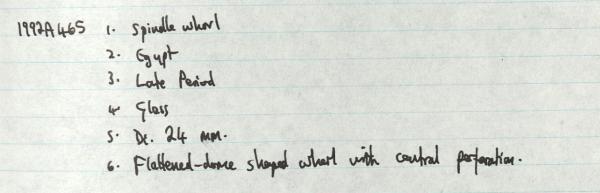 1992A465 1. Spindle whorl
2. Egypt
3. Late Period
4. Glass
5. D. 24 mm.
6. Flattened-dome shaped whorl with central perforation.